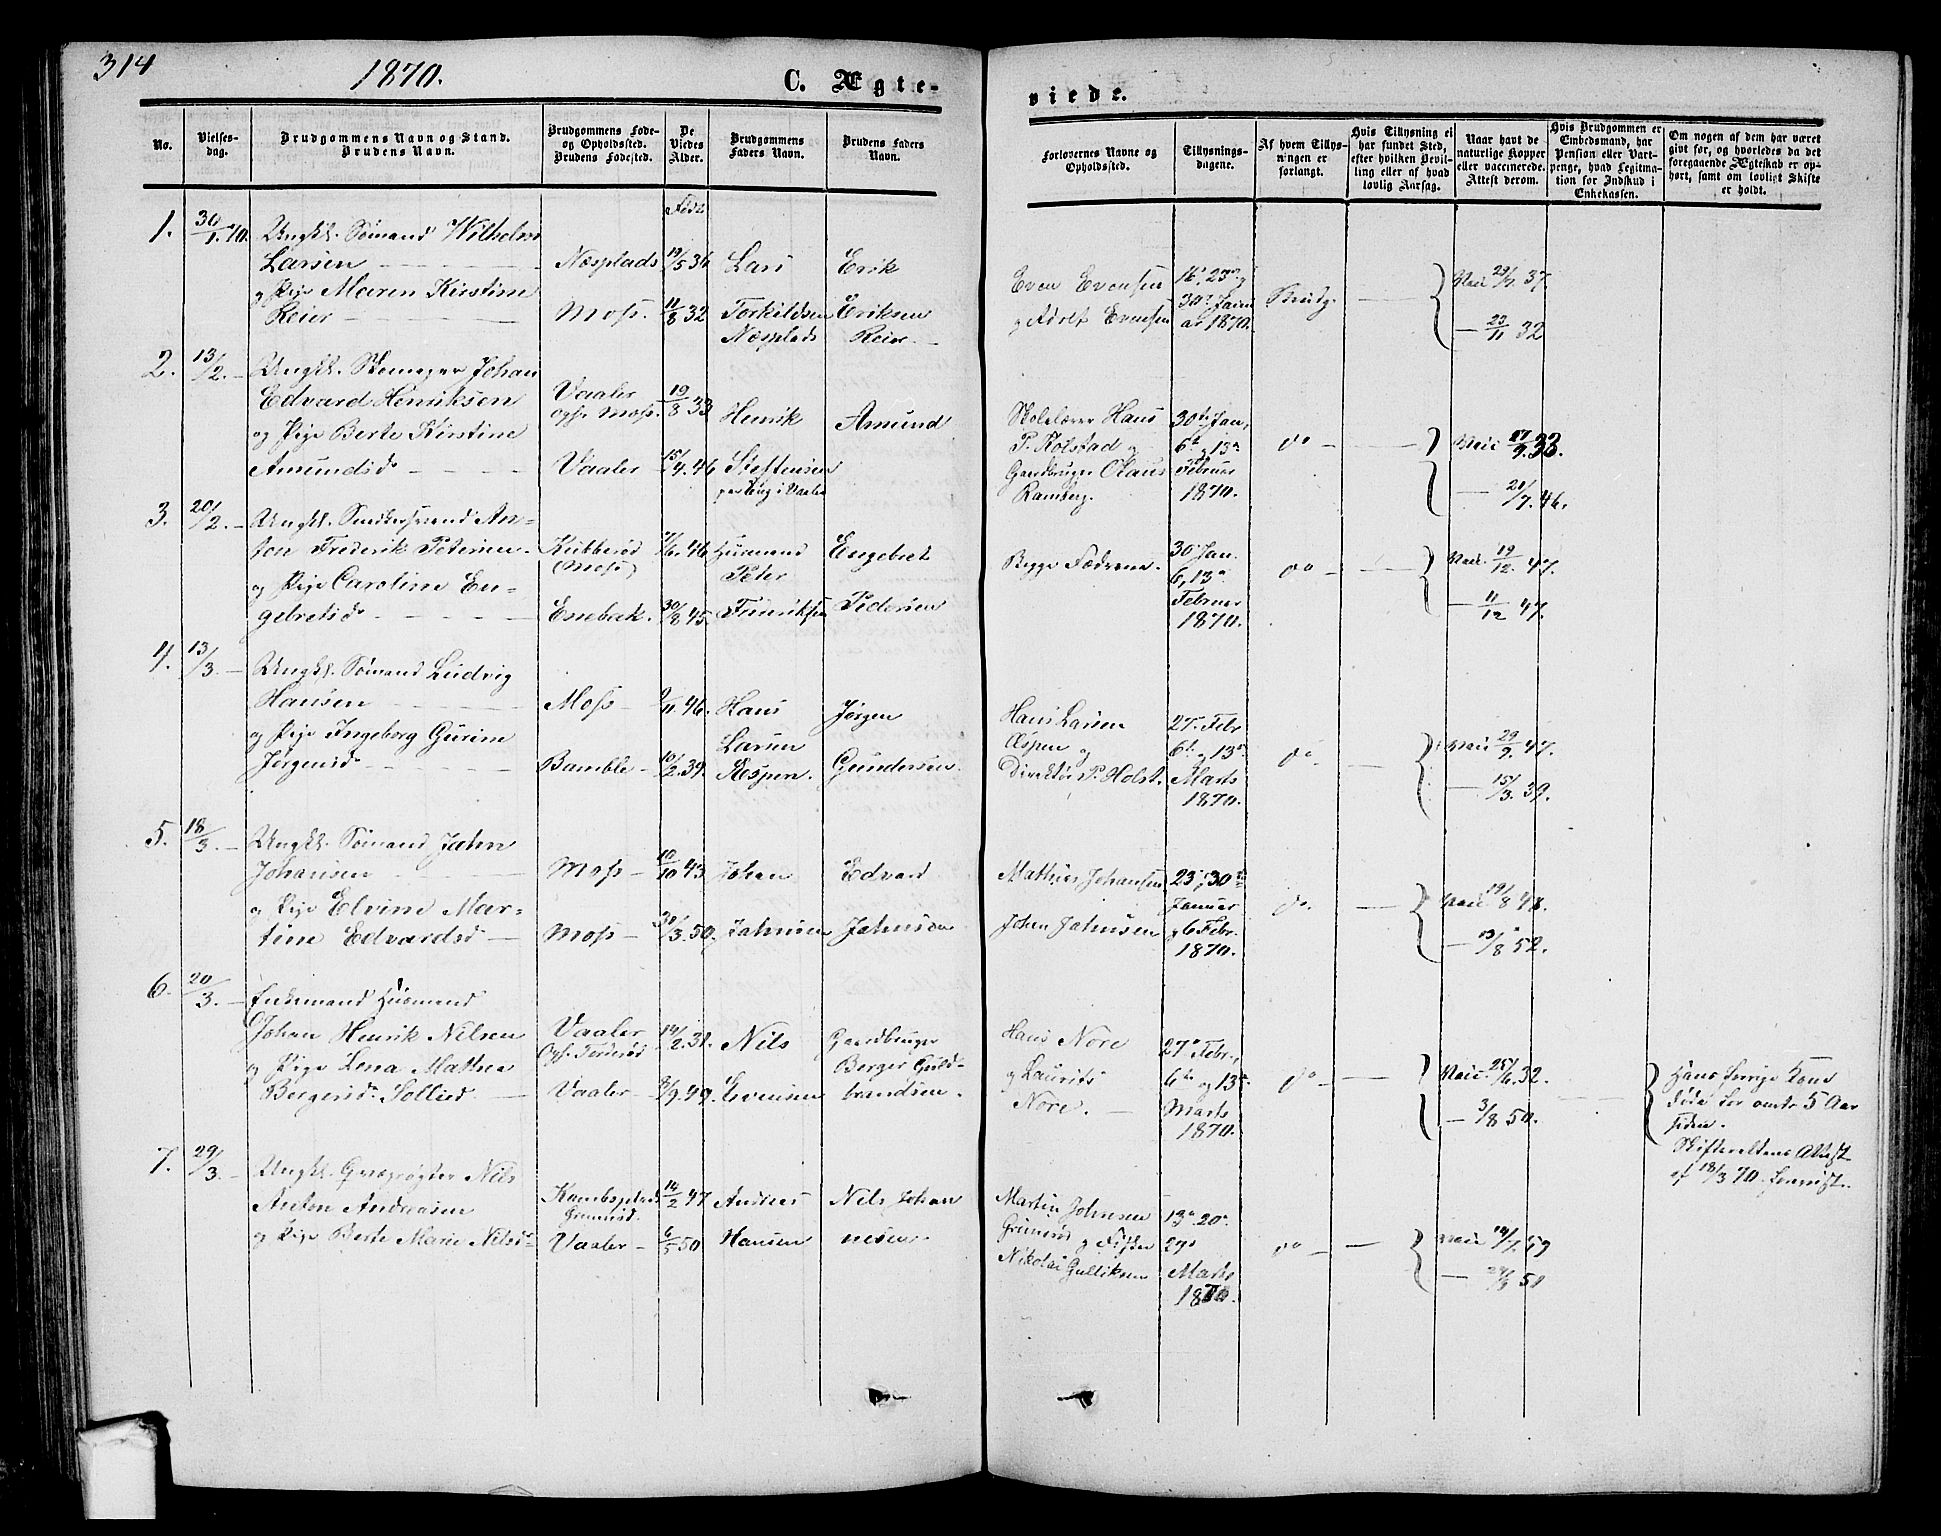 314
1870.
C. Ægte-
No.
Vielses-
dag.
Brudgommens Navn og Stand.
Brudens Navn.
Brudgommens Føde-
og Opholdssted.
Brudens Fødested.
De
Viedes
Alder.
Brudgommens
Faders Navn.
Brudens Faders
Navn.
1. 30/1.70. Ungkl. Sømand Wilhelm
Larsen
og Pige Maren Kirstine
Reier
Næsplads
Moss.
Født
5 36
11/8 32
Lars
Torkildsen
Næsplads
Erik
Eriksen
Reier
2. 13/2. Ungkl. Skomager Johan
Edvard Henriksen
og Pige Berte Kirstine
Amundsd.
Vaaler
oph. Moss.
Vaaler
19/8 33
15/4. 46
Henrik
Steffensen
i Vaaler
Amund
3. 20/2. Ungkl. Snedkersvend An-
ton Frederik Petersen
og Pige Caroline En-
gebretsd.
Kubberød
(Moss)
Enebak.
6. 46
30/8 45.
Husmand
Peter
Engebret
Pedersen
4. 13/3. Ungkl. Sømand Ludvig
Hansen
og Pige Ingeborg Gurine
Jørgensd.
Moss
Bamble
9/11. 46.
10/2. 39.
Hans
Larsen
Æspen.
Jørgen
Gundersen.
5. 18/3. Ungkl. Sømand Jahn
Johansen
og Pige Elvine Mar-
tine Edvardsd.
Moss
Moss
10/10 43
3. 50.
Johan
Jahnsen
Edvard
Jahnsen
6. 20/3. Enkemand Husmand
Johan Henrik Nilsen
og Pige Lena Mathea
Bergersd. Sollied
Vaaler
Oph.
Vaaler
14/2. 31.
9. 49.
Nils
Evensen
Gaardbruger
Berger Guld-
brandsen.
7. 29/3. Ungkl. Nils
Anton Andreasen
og Pige Berte Marie Nilsd.
Kambsplads
Grimsrød.
Vaaler
14/2 47
6/5 50
Andreas
Hansen
Nils Johan
nesen
viede.
Forlovernes Navne og
Opholdssted.
Tillysnings-
dagene.
Af hvem Tillys-
ningen er
forlangt.
Hvis Tillysning ei
har fundet Sted,
efter hvilken Bevil-
ling eller af hvad
lovlig Aarsag.
Naar havt de
naturlige Kopper
eller vaccinerede.
Attest derom.
Hvis Brudgommen er
Embedsmand, har
Pension eller Vart-
penge, hvad Legitima-
tion for Indskud i
Enkekassen.
Om nogen af dem har været
gift før, og hvorledes da det
foregaaende Ægteskab er op-
hørt, samt om lovligt Skifte
er holdt.
Even Evensen
og Adolf Evensen
16, 23 og
30 Janu
ar 1870.
Brudg.
37
23/11 32
Skolelærer Hans
P. Kolstad og
Gaardbruger Olaus
Ramberg.
30te Jan,
6te og 13de
Februar
1870.
do
Vacc. 17/9. 33.
20/7. 46.
Begge Fædrene.
30 Jan.
6, 13de
Februar
1870.
do
Vacc. 19/12. 47.
11/12 47.
Hans Larsen
Æspen og
Direktør P. Holst.
27 Febr
6te og 13de
Marts
1870.
do
Vacc 29/9. 47.
15/3. 39.
Mathias Johansen
Johan Jahnsen
23, 30te
Januar
og 6 Febr.
1870.
do.
Vacc. 19/8 48.
8 52.
Hans Nore
og Laurits
Nore.
27de Febr.,
6te og 13de
Marts
1870.
do
Vacc. 25/6. 32.
3/8 50.
Hans forrige Kone
døde for omtr. 5 Aar
siden.
Skifterettens Attest
af 18/3 70 foreviist.
Martin Johnsen
Grimsrød og
Nikolai Gulliksen
13de 20de
29de
Marts
1870.
do
Vacc
51